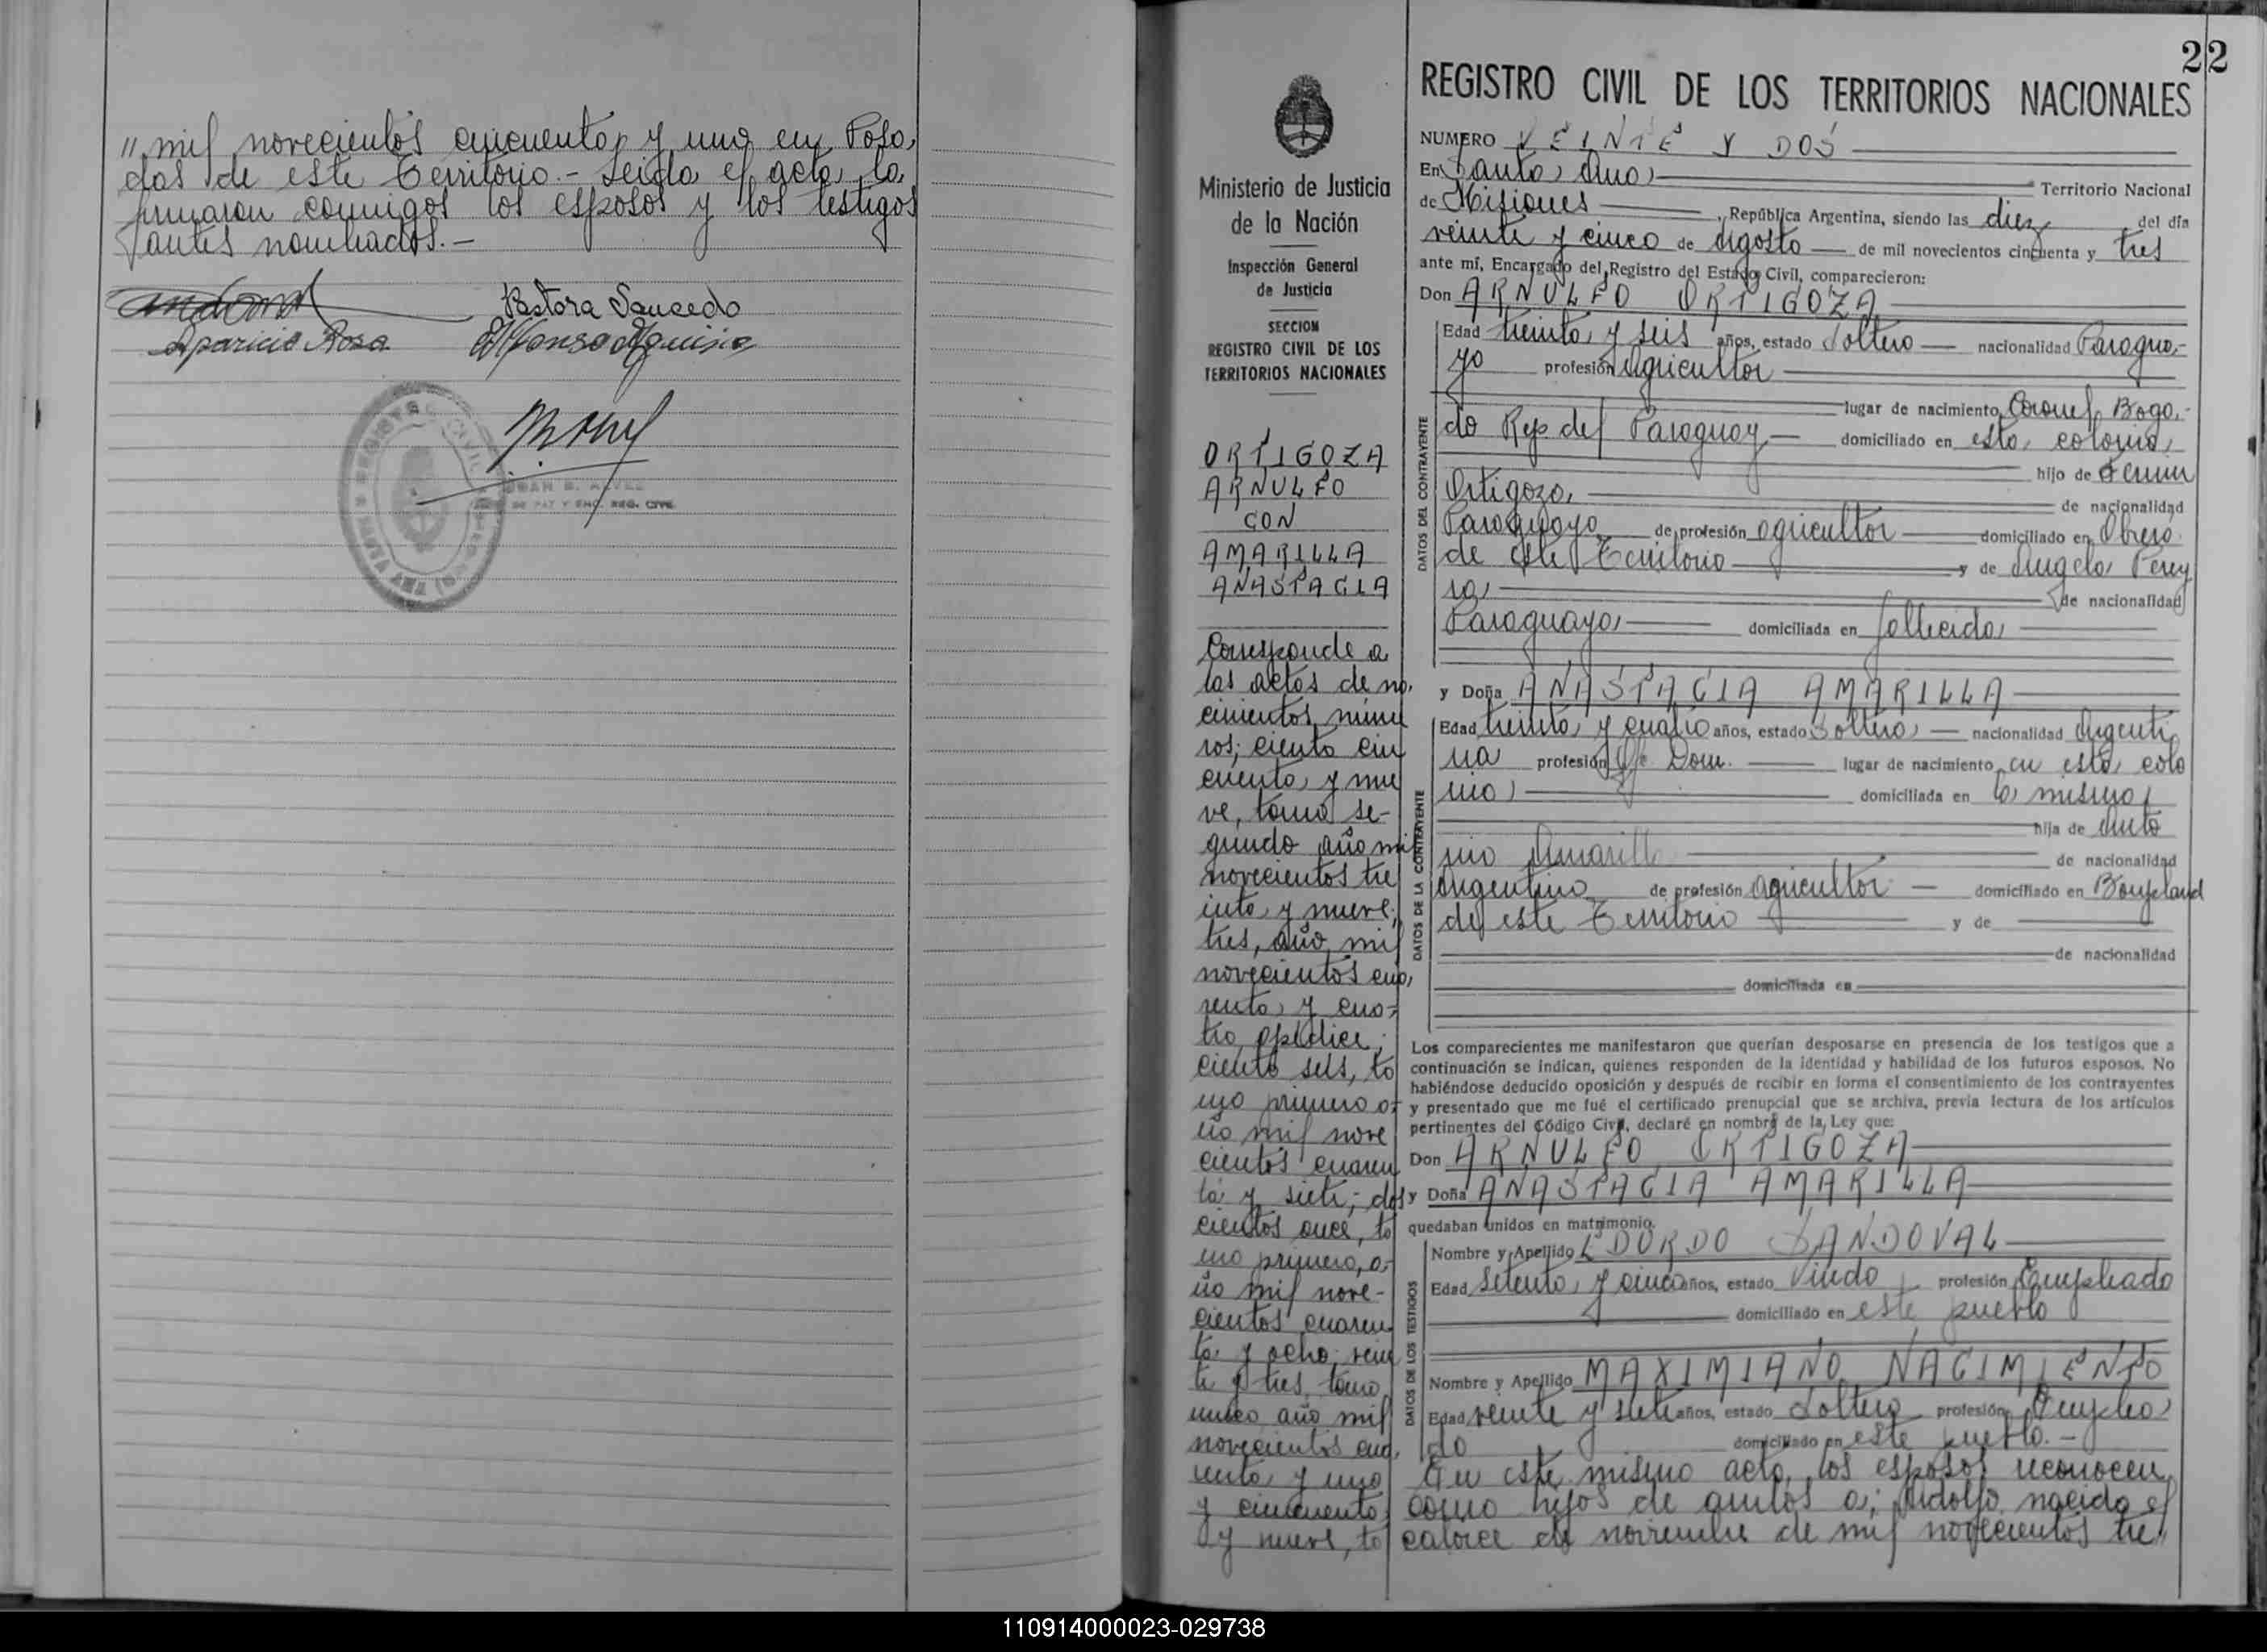 " mil novecientos cincuenta y uno en Posa-
das de este Territorio.- Leida el acta, la
firmaron conmigo, los esposos y los testigos
antes nombrados.-
Pastora Saucedo
Aparicio Rosa
REGISTRO CIVIL
22
Ministerio de Justicia
de la Nación
Inspección General
de Justicia
SECCION
REGISTRO CIVIL DE LOS
TERRITORIOS NACIONALES
ORTIGOZA
ARNULFO
CON
AMARILLA
ANASTACIA
Corresponde a
las actas de na-
cimientos núme
ros; ciento cin
cuenta y nue
ve, tomo se-
gundo año mil
novecientos tre
inta y nueve;
tres, año mil
novecientos cua
renta y cua-
tro, apédice;
ciento seis, to
mo primero a-
ño mil nove
cientos cuaren
ta y siete; dos
cientos once, to
mo primero, a-
ño mil nove-
cientos cuaren
ta y ocho; vein
te y tres, tomo
unico año mil
novecientos cua
renta y uno
y cincuenta
y nueve, to
REGISTRO CIVIL DE LOS TERRITORIOS NACIONALES
NUMERO VEINTE Y DOS
En Santa Ana Territorio Nacional
de Misiones, República Argentina, siendo las diez del día
veinte y cinco de Agosto de mil novecientos cincuenta y tres
ante mí, Encargado del Registro del Estado Civil, comparecieron:
Don ARNULFO ORTIGOZA
DATOS DEL CONTRAYENTE
Edad treinta y seis años, estado Soltero nacionalidad Paragua-
yo profesión Agricultor
lugar de nacimiento Coronel Boga-
do Rep. del Paraguay domiciliado en esta colonia
hijo de Fermin
Ortigoza de nacionalidad
Paraguayo de profesión agricultor domiciliado en Oberá
de este Territorio y de Angela Perey
ra de nacionalidad
Paraguaya domiciliada en fallecida
y Doña ANASTACIA AMARILLA
DATOS DE LA CONTRAYENTE
Edad treinta y cuatro años, estado Soltera nacionalidad Argenti
na profesión Q. Dom. lugar de nacimiento en esta colo
nia domiciliada en la misma
hija de Anto
nio Amarilla de nacionalidad
Argentino de profesión agricultor domiciliado en Bonpland
de este Territorio y de
de nacionalidad
domiciliada en
Los comparecientes me manifestaron que querían desposarse en presencia de los testigos que a
continuación se indican, quienes responden de la identidad y habilidad de los futuros esposos. No
habiéndose deducido oposición y después de recibir en forma el consentimiento de los contrayentes
y presentado que me fué el certificado prenupcial que se archiva, previa lectura de los artículos
pertinentes del Código Civil, declaré en nombre de la Ley que:
Don ARNULFO ORTIGOZA
y Doña ANASTACIA AMARILLA
quedaban unidos en matrimonio.
DATOS DE LOS TESTIGOS
Nombre y Apellido EDUARDO SANDOVAL
Edad setenta y cinco años, estado Viudo profesión Empleado
domiciliado en este pueblo
Nombre y Apellido MAXIMIANO NACIMIENTO
Edad veinte y siete años, estado Soltero profesión Emplea
do domiciliado en este pueblo.-
En este mismo acto, los esposos reconocen
como hijos de ambos a; Adolfo nacido el
catorce de noviembre de mil novecientos tre"
110914000023-029738